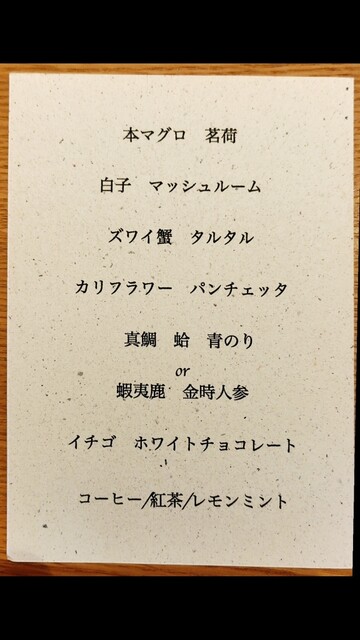 本マグロ　茗荷
白子　マッシュルーム
ズワイ蟹　タルタル
カリフラワー　パンチェッタ
真鯛　蛤　青のり
or
蝦夷鹿　金時人参
イチゴ　ホワイトチョコレート
コーヒー/紅茶/レモンミント